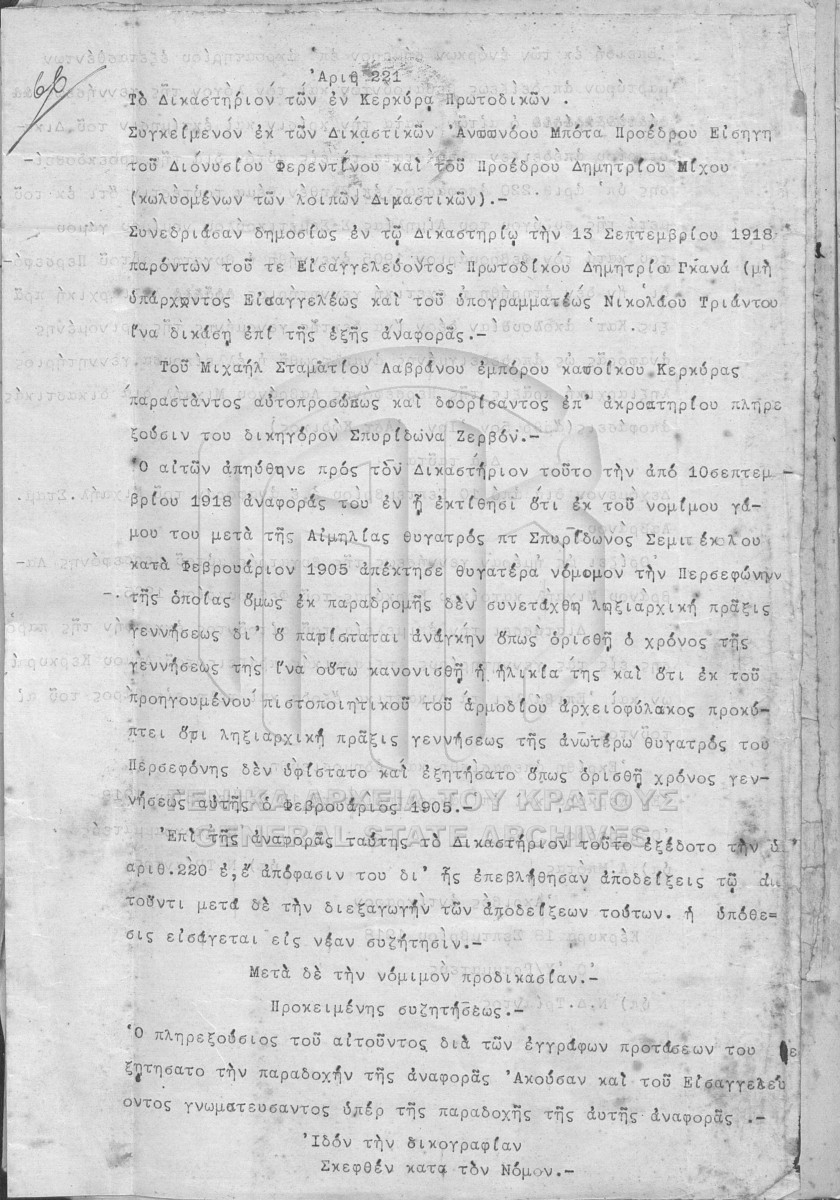 Ἀριθ 221
Τὸ Δικαστήριον τῶν ἐν Κερκύρα Πρωτοδικῶν .
Συγκείμενον ἐκ τῶν Δικαστικῶν Μπότα Προέδρου Εἰσηγη
τοῦ Διονυσίου Φερεντίνου καὶ τοῦ Προέδρου Δημητρίου Μίχου
(κωλυομένων τῶν λοιπῶν Δικαστικῶν).-
Συνεδριάσαν δημοσίως ἐν τῷ Δικαστηρίῳ τὴν 13 Σεπτεμβρίου 1918
παρόντων τοῦ τε Εἰσαγγελεύοντος Πρωτοδίκου Δημητρίου Γκανά (μὴ
ὑπάρχοντος Εἰσαγγελέως καὶ τοῦ ὑπογραμματέως Νικολάου Τριάντου
ἵνα δικάσῃ ἐπὶ τῆς ἑξῆς ἀναφορᾶς.-
Τοῦ Μιχαήλ Σταματίου Λαβράνου ἐμπόρου κατοίκου Κερκύρας
παραστάντος αὐτοπροσώπως καὶ διορίσαντος ἐπ' ἀκροατηρίου πληρε
ξούσιν του δικηγόρον Σπυρίδωνα Ζερβόν.-
Ὁ αἰτῶν ἀπηύθηνε πρός τὸν Δικαστήριον τοῦτο τὴν ἀπό 10σεπτεμ-
βρίου 1918 ἀναφοράς του ἐν ᾗ ἐκτίθησι ὅτι ἐκ τοῦ νομίμου γά-
μου του μετὰ τῆς Αἰμηλίας θυγατρός πτ Σπυρίδωνος Σεμιτέκλου
κατά Φεβρουάριον 1905 ἀπέκτησε θυγατέρα νόμομον τὴν Περσεφώνην
τῆς ὁποίας ὅμως ἐκ παραδρομῆς δὲν συνετάχθη ληξιαρχική πρᾶξις
γεννήσεως δι' ὅ παρίσταται ἀνάγκην ὅπως ὁρισθῇ ὁ χρόνος τῆς
γεννήσεως της ἵνα οὕτω κανονισθῇ ἡ ἡλικία της καὶ ὅτι ἐκ τοῦ
προηγουμένου πιστοποιητικοῦ τοῦ ἁρμοδίου ἀρχειοφύλακος προκύ-
πτει ὅτι ληξιαρχική πρᾶξις γεννήσεως τῆς ἀνωτέρω θυγατρός του
Περσεφόνης δὲν ὑφίστατο καὶ ἐξητήσατο ὅπως ὁρισθῇ χρόνος γεν-
νήσεως αὐτῆς ὁ Φεβρουάριος 1905.-
ΓΕΝΙΚΑ ΑΡΧΕΙΑ ΤΟΥ ΚΡΑΤΟΥΣ
GENERAL STATE ARCHIVES
Ἐπί τῆς ἀναφορᾶς ταύτης τὸ Δικαστήριον τοῦτο ἐξέδοτο τὴν ὑ
ἀριθ.220 ἐ,ἔ ἀπόφασιν του δι' ἧς ἐπεβλήθησαν ἀποδείξεις τῷ αἰ
τοῦντι μετά δὲ τὴν διεξαγωγήν τῶν ἀποδείξεων τούτων. ἡ ὑπόθε-
σις εἰσάγεται εἰς νέαν συζήτησιν.-
Μετὰ δὲ τὴν νόμιμον προδικασίαν.-
Προκειμένης συζητήσεως.-
Ὁ πληρεξούσιος τοῦ αἰτοῦντος διὰ τῶν ἐγγράφων προτάσεων του ε
ξητησατο τὴν παραδοχήν τῆς ἀναφορᾶς Ἀκούσαν καὶ τοῦ Εἰσαγγελεύ
οντος γνωματευσαντος ὑπέρ τῆς παραδοχῆς τῆς αὐτῆς ἀναφορᾶς .-
Ἰδόν τὴν δικογραφίαν
Σκεφθέν κατα τὸν Νόμον.-